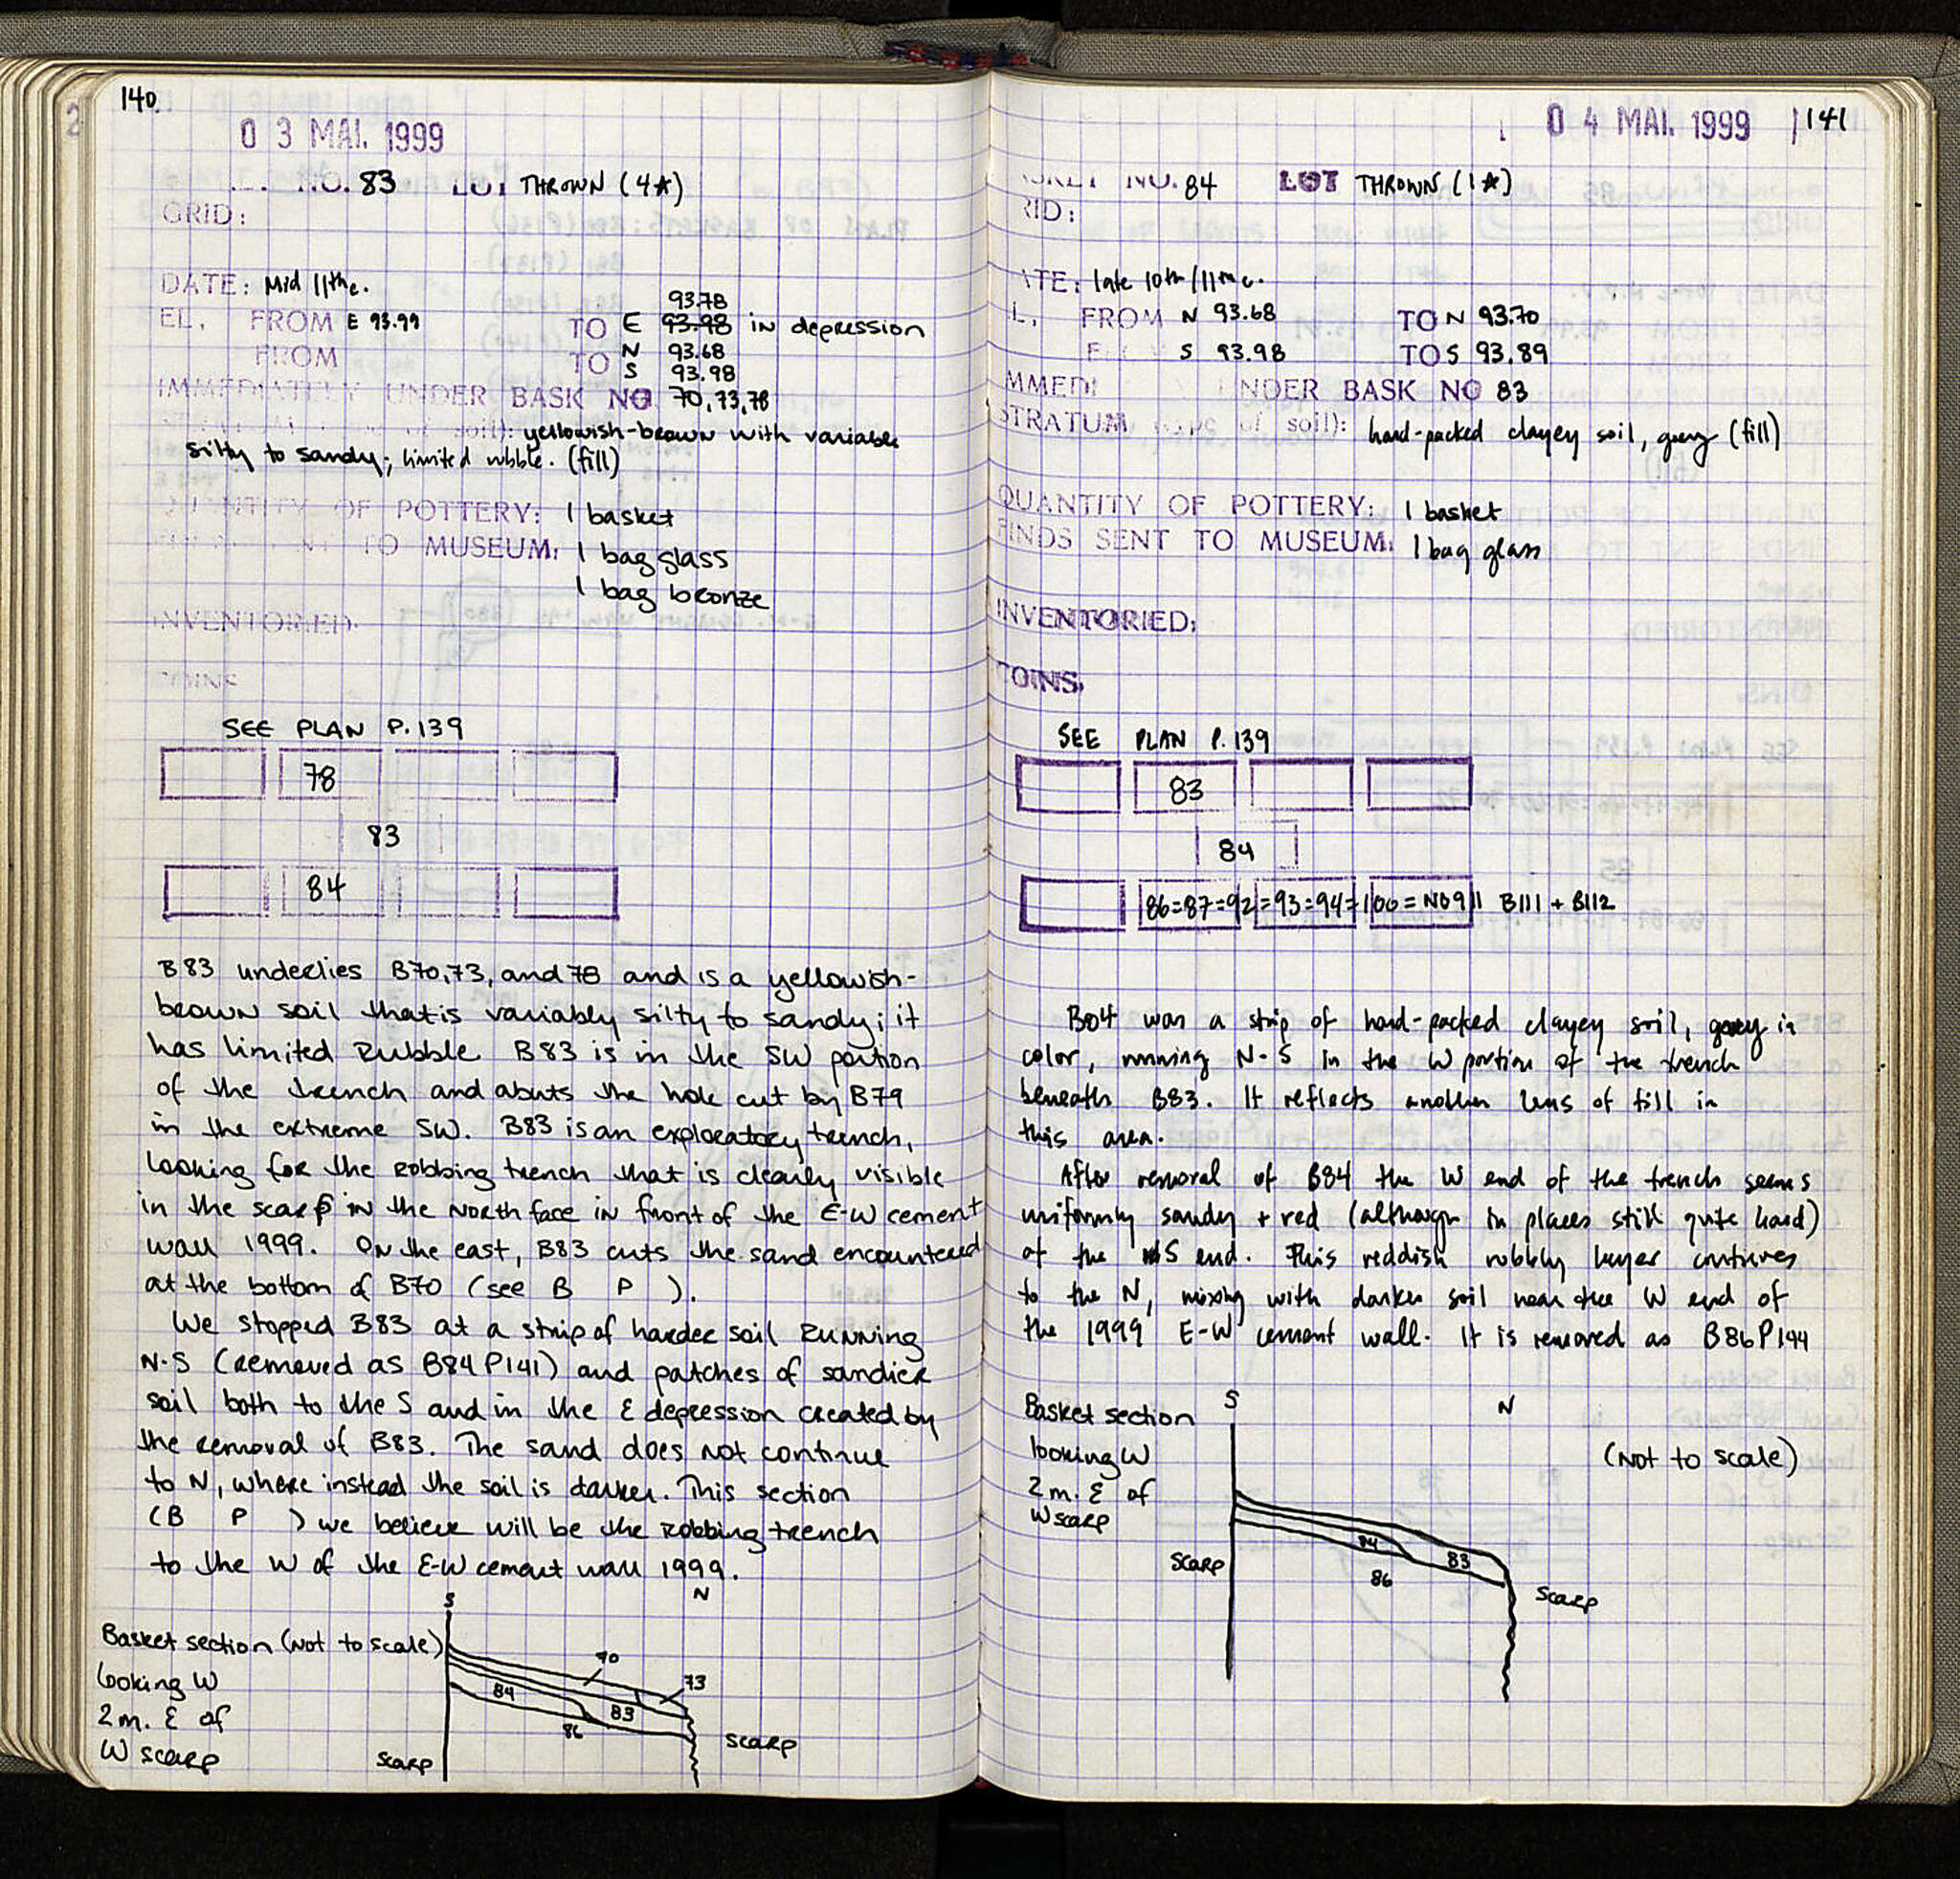 140.
03 MAI. 1999
NO. 83 LOT THROWN (4☆)
GRID:
DATE: Mid 11th c.
93.78
EL. FROM E 93.99 TO E 93.98 in depression
FROM TO N 93.68
S 93.98
IMMEDIATELY UNDER BASK NO 70, 73, 78
soil): yellowish-brown with variable
silty to sandy; limited rubble. (fill)
QUANTITY OF POTTERY: 1 basket
TO MUSEUM: 1 bag glass
1 bag bronze
INVENTORIED.
COINS
SEE PLAN P. 139
78
83
84
B83 underlies B70, 73, and 78 and is a yellowish-
brown soil that is variably silty to sandy; it
has limited rubble. B83 is in the SW portion
of the trench and abuts the hole cut by B79
in the extreme SW. B83 is an exploratory trench,
looking for the robbing trench that is clearly visible
in the scarp in the North face in front of the E-W cement
wall 1999. On the east, B83 cuts the sand encountered
at the bottom of B70 (see B P ).
We stopped B83 at a strip of harder soil running
N-S (removed as B84 P141) and patches of sandier
soil both to the S and in the E depression created by
the removal of B83. The sand does not continue
to N, where instead the soil is darker. This section
(B P ) we believe will be the robbing trench
to the W of the E-W cement wall 1999.
S N
Basket section (Not to scale)
looking W
2 m. E of
W scarp
70
73
84
83
86
scarp
scarp
04 MAI. 1999 141
NO. 84 LOT THROWN (1☆)
RID:
ATE: late 10th/11th c.
L. FROM N 93.68 TO N 93.70
S 93.98 TO S 93.89
MMEDI UNDER BASK NO 83
STRATUM (type of soil): hard-packed clayey soil, grey (fill)
QUANTITY OF POTTERY: 1 basket
FINDS SENT TO MUSEUM: 1 bag glass
INVENTORIED:
COINS.
SEE PLAN P. 139
83
84
86=87=92=93=94=100=NB911 B111 + B112
B84 was a strip of hard-packed clayey soil, grey in
color, running N-S in the W portion of the trench
beneath B83. It reflects another lens of fill in
this area.
After removal of B84 the W end of the trench seems
uniformly sandy + red (although in places still quite hard)
at the S end. This reddish rubbly layer continues
to the N, mixing with darker soil near the W end of
the 1999 E-W cement wall. It is removed as B86 P144
S N
Basket section
looking W
2 m. E of
W scarp
(Not to scale)
84
83
86
scarp
scarp